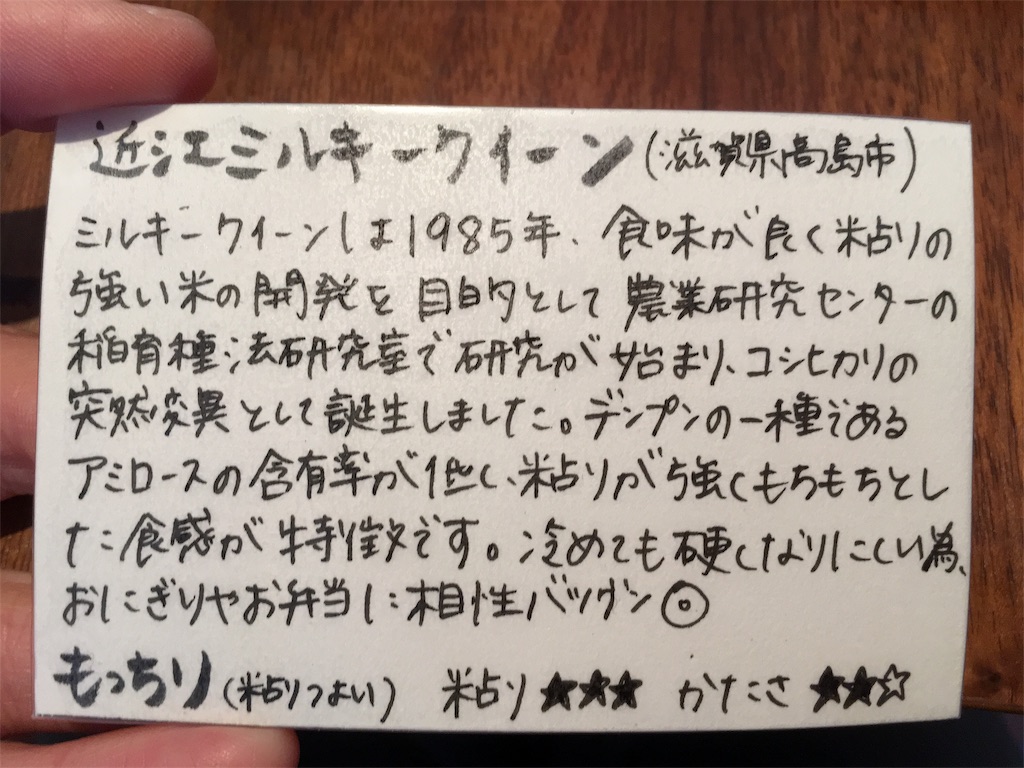 近江ミルキークイーン(滋賀県高島市)
ミルキークイーンは1985年、食味が良く粘りの
強い米の開発を目的として農業研究センターの
稲育種法研究室で研究が始まり、コシヒカリの
突然変異として誕生しました。デンプンの一種である
アミロースの含有率が低く、粘りが強くもちもちとし
た食感が特徴です。冷めても硬くなりにくい為、
おにぎりやお弁当に相性バツグン◎
もっちり(粘りつよい) 粘り★★★ かたさ★★☆